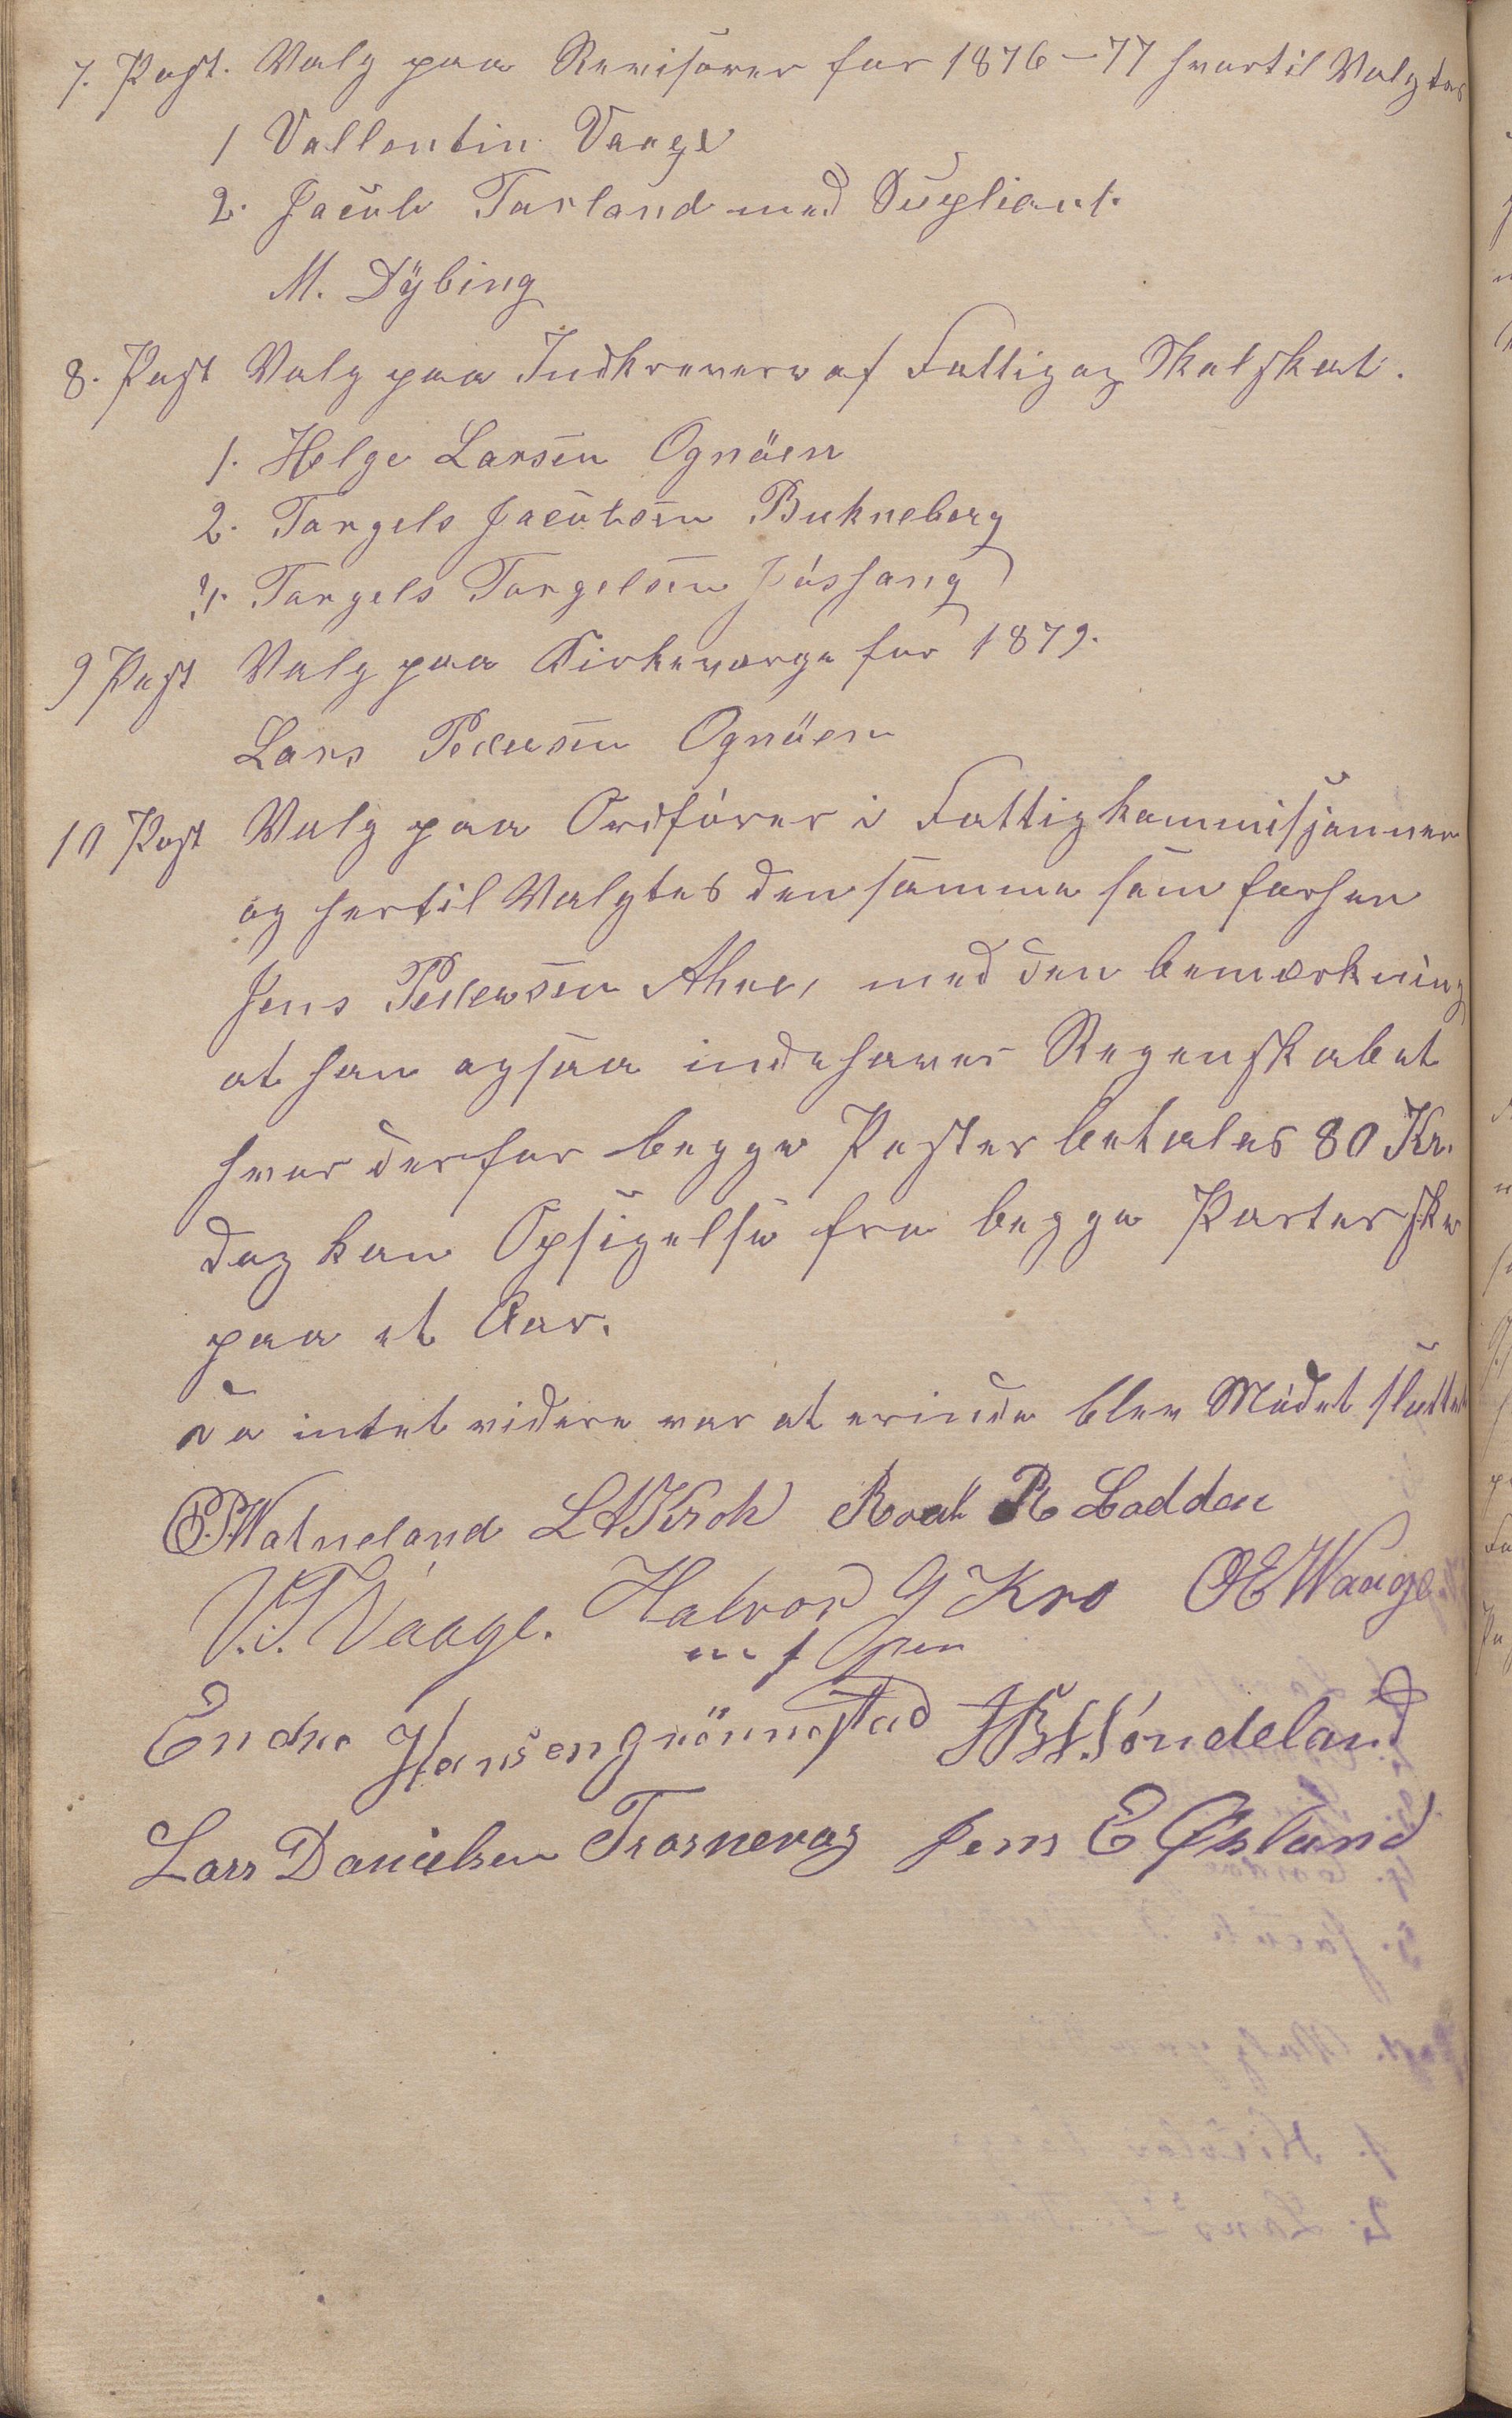 7. Post. Valg paa Revisorer for 1876-77 hvortil Valgtes
1 Vallentin Vaage
2. Jacob Torland med Supliant.
M. Dÿbing
8. Post Valg paa Indkrevere af Fattig og Skolskat.
1. Helge Larsen Ognöen
2. Torgels Jacobsen Bukneberg
3. Torgels Torgelsen
9 Post Valg paa Kirkeværge for 1879.
Lars Pedersen Ognöen
10 Post Valg paa Ordfórer i Fattigkommisjonen
og hertil Valgtes den samme som forhen
Jens Pedersen med den bemærkning
at han ogsaa indehaver Regenskabet
hvor derfor begge Poster betales 80 Kr.
dog kan Opsigelse fra begge Parter ske
paa et Aar.
Da intet videre var at erindre blev Módet sluttet
P. Watneland L A Kroh R Loddan
V. T. Vaage. Halvor G Kro O E Waage
m f Pen
Endre Hansen Grönnestad Sóndeland
Lars Danielsen Trosnevag Jens E Østand
3. Jacob
Post. Valg paa
1.
2. Lars